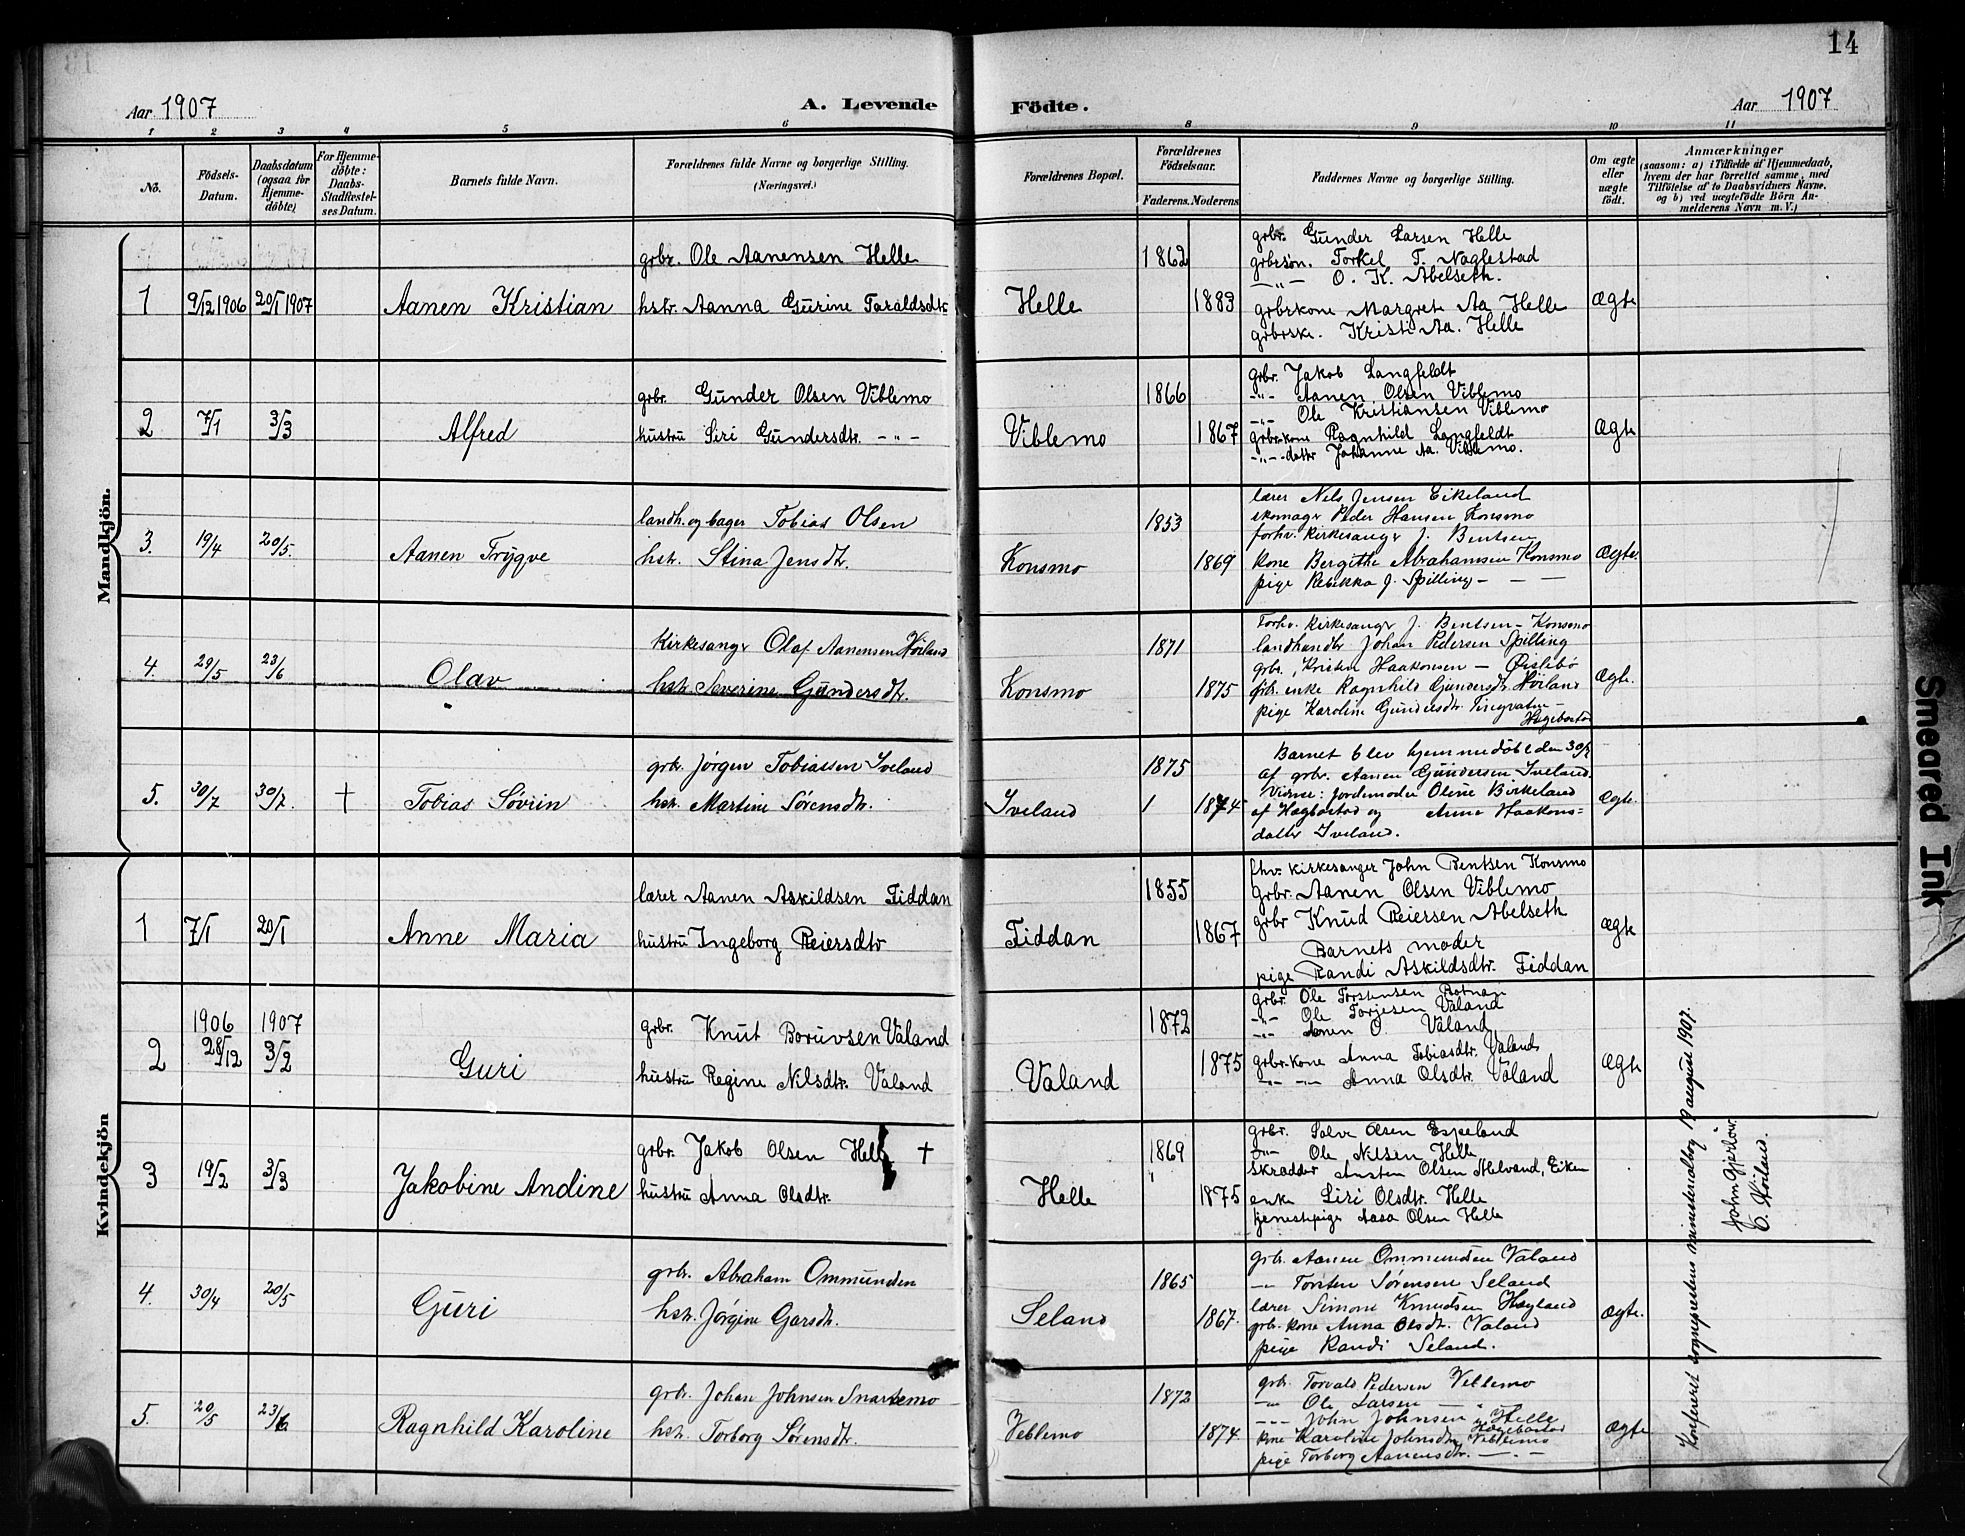 14
Aar 1907
A. Levende
Födte.
Aar 1907
1 2 3 4 5 6 8 9 10 11
No.
Födsels-Datum.
Daabsdatum (ogsaa for Hjemme-döbte)
For Hjemme-döbte: Daabs-Stadfæstel-ses Datum.
Barnets fulde Navn.
Forældrenes fulde Navne og borgerlige Stilling. (Næringsvei.)
Forældrenes Bopæl.
Forældrenes Födselsaar.
Faderens. Moderens
Faddernes Navne og borgerlige Stilling.
Om ægte eller uægte födt.
Anmærkninger
(saasom: a) i Tilfælde af Hjemmedaab, hvem der har forrettet samme, med Tilföielse af to Daabsvidners Navne, og b) ved uægtefödte Börn An-melderens Navn m. V.)
Mandkjön.
1 9/12 1906 20/1 1907 Aanen Kristian
grbr. Ole Aanensen Helle
hstr. Aanna Gurine Taraldsdtr
Helle 1862 1883
grbr. Gunder Larsen Helle
grbrsön. Torkel T. Naglestad
—"— O. K. Abelseth.
grbrkone Margret Aa Helle
grbrske. Kristi Aa. Helle
Ægte
2 7/1 3/3 Alfred
grbr. Gunder Olsen Viblemo
hustru Siri Gundersdtr. -"-
Viblemo 1866 1867
grbr. Jakob Langfeldt
-"- Aanen Olsen Viblemo
-"- Ole Kristiansen Viblemo
grbrkone Ragnhild Langfeldt
-"- datter Johanne Aa. Viblemo.
Ægte
3. 19/4 20/5. Aanen Trygve
landh. og bager Tobias Olsen
hstr. Stina Jensdtr.
Konsmo 1853 1869
lærer Nels Jensen Eikeland
skomager Peder Hansen Konsmo
forhv. kirkesanger J. Bentsen
kone Bergithe Abrahamsen Konsmo
pige Rebekka J. Spilling - — —
Ægte.
4. 29/5 23/6 Olav
Kirkesanger Olaf Aanensen Höiland
hstr. Severine Gundersdtr.
Konsmo 1871 1875
Forhv. kirkesanger J. Bentsen - Konsmo
landhandler Johan Pedersen Spilling
grbr. Kristen Haakonsen — Øislebö
grb. enke Ragnhild Gundersdtr. Höiland
pige Karoline Gundersdtr. Tingvatn -
Hægebostad
Ægte.
5. 30/7 30/7 † Tobias Sövrin
grbr. Jörgen Tobiassen Iveland
hstr. Martine Sörensdtr.
Iveland 1875 1874
Barnet blev hjemmedöbt den 30/7
af grbr. Aanen Gundersen Iveland.
Vidner: jordemoder Oline Birkeland
af Hægbostad og Anne Haakons=
datter Iveland.
Ægte.
Kvindekjön
1 7/1 20/1 Anne Maria
lærer Aanen Askildsen Fiddan
hustru Ingeborg Reiersdtr
Fiddan 1855 1867
fhv. kirkesanger John Bentsen Konsmo
Grbr. Aanen Olsen Viblemo
grbr Knud Reiersen Abelseth
Barnets moder
pige Randi Askildsdtr. Fiddan
Ægte
2 1906 28/12 1907 3/2 Guri
grbr. Knut Boruvsen Valand
hustru Regine Nilsdtr. Valand
Valand 1872 1875
grbr. Ole Torstensen
-"- Ole Torjesen Valand
-"- Aanen O. Valand
grbr.kone Anna Tobiasdtr. Valand
-"- -"- Anna Olsdtr. Valand
Ægte
3 19/2 3/3 Jakobine Andine
grbr. Jakob Olsen Helle †
hustru Anna Olsdtr.
Helle 1869 1875
grbr. Salve Olsen Espeland
-"- Ole Nilsen Helle
Skrædder Austen Olsen Helvand, Eiken
enke Siri Olsdtr. Helle
tjenestepige Aasa Olsen Helle
4. 30/4 20/5 Guri
grbr. Abraham Ommundsen
hstr. Jörgine Garsdtr.
Seland 1865 1867.
grbr. Aanen Ommundsen Valand
-"- Torsten Sörensen Seland
lærer Simon Knudsen Høyland
grb. kone Anna Olsdtr. Valand
pige Randi Seland.
Ægte.
5. 20/5 23/6 Ragnhild Karoline
grbr. Johan Johnsen Snartemo
hstr. Torborg Sörensdtr.
Veblemo 1872 1874
grb. Torvald Pedersen Veblemo
-"- Ole Larsen — " —
-"- John Johnsen Helle
Hægebostad
kone Karoline Johnsdtr. Viblemo
pige Torborg Aanensdtr. — " —
Ægte
Konfereret sogneprestens ministerialbog 19 august 1907.
John Gjerlöw.
O. Höiland.
Smeared Ink